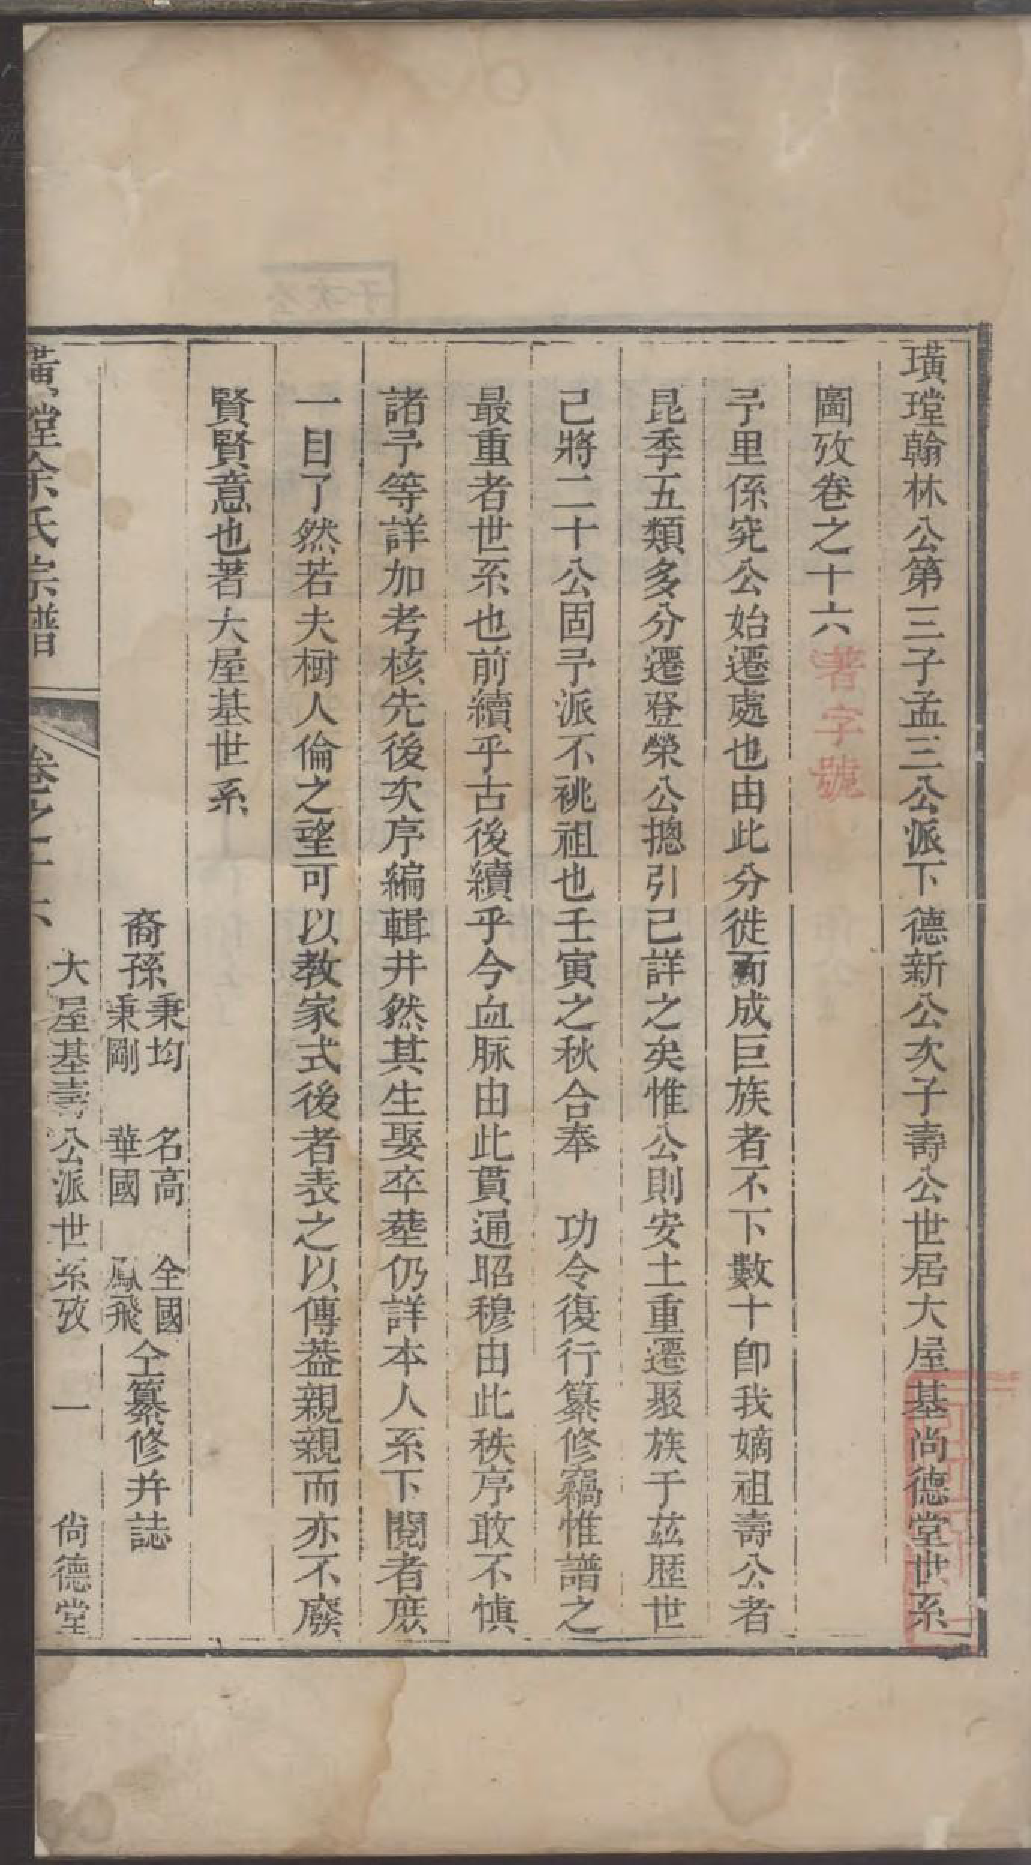 璜瑝翰林公第三子孟三公派下德新公次子壽公世居大屋基尚德堂世系
圖攷卷之十六 著字號
予里係究公始遷處也由此分徙而成巨族者不下數十卽我嫡祖壽公者
昆季五類多分遷登榮公摠引已詳之矣惟公則安土重遷聚族于茲歴世
已將二十公固予派不祧祖也壬寅之秋合奉 功令復行纂修竊惟譜之
最重者世系也前續乎古後續乎今血脉由此貫通昭穆由此秩序敢不慎
諸予等詳加考核先後次序編輯井然其生娶卒塟仍詳本人系下閱者庶
一目了然若夫樹人倫之望可以教家式後者表之以傳葢親親而亦不廢
賢賢意也著大屋基世系
裔孫秉均 名高 全國
秉剛 華國 鳳飛 仝纂修幷誌
璜瑝余氏宗譜 卷之十六 大屋基壽公派世系攷 一 尙德堂